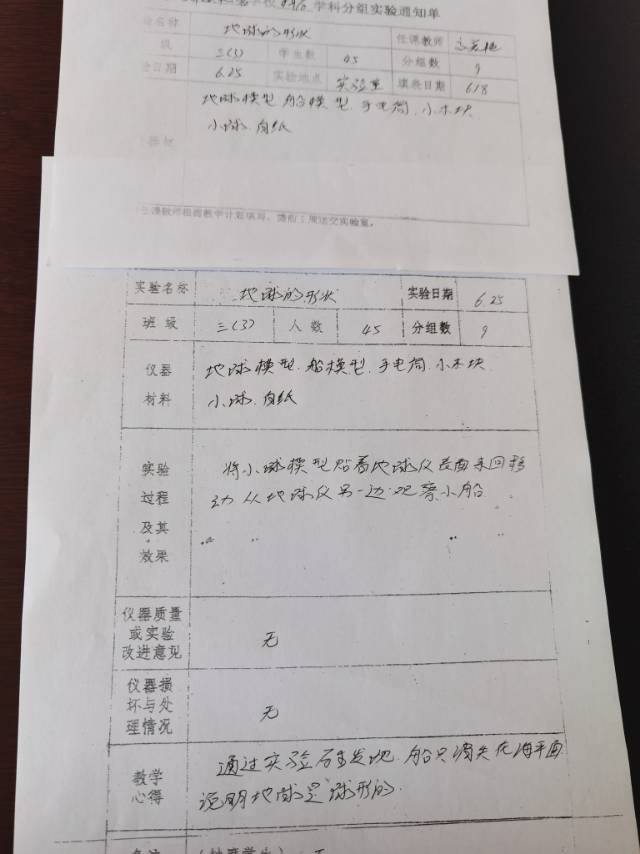 学科分组实验通知单
名称 地球的形状 任课教师
级 三(3) 学生数 45 分组数 9
日期 6.25 实验地点 实验室 填表日期 6.18
地球模型.船模型.手电筒.小木块
小球.白纸
任课教师根据教学计划填写,提前1周送交实验室。
实验名称 地球的形状 实验日期 6.25
班级 三(3) 人数 45 分组数 9
仪器 地球模型.船模型.手电筒.小木块
材料 小球.白纸
实验 将小球模型贴着地球仪表面来回移
过程 动从地球仪另一边观察小船
及其
效果
仪器质量
或实验
改进意见 无
仪器损
坏与处
理情况 无
教学 通过实验 发现 船只消失在海平面
心得 说明地球是球形的.